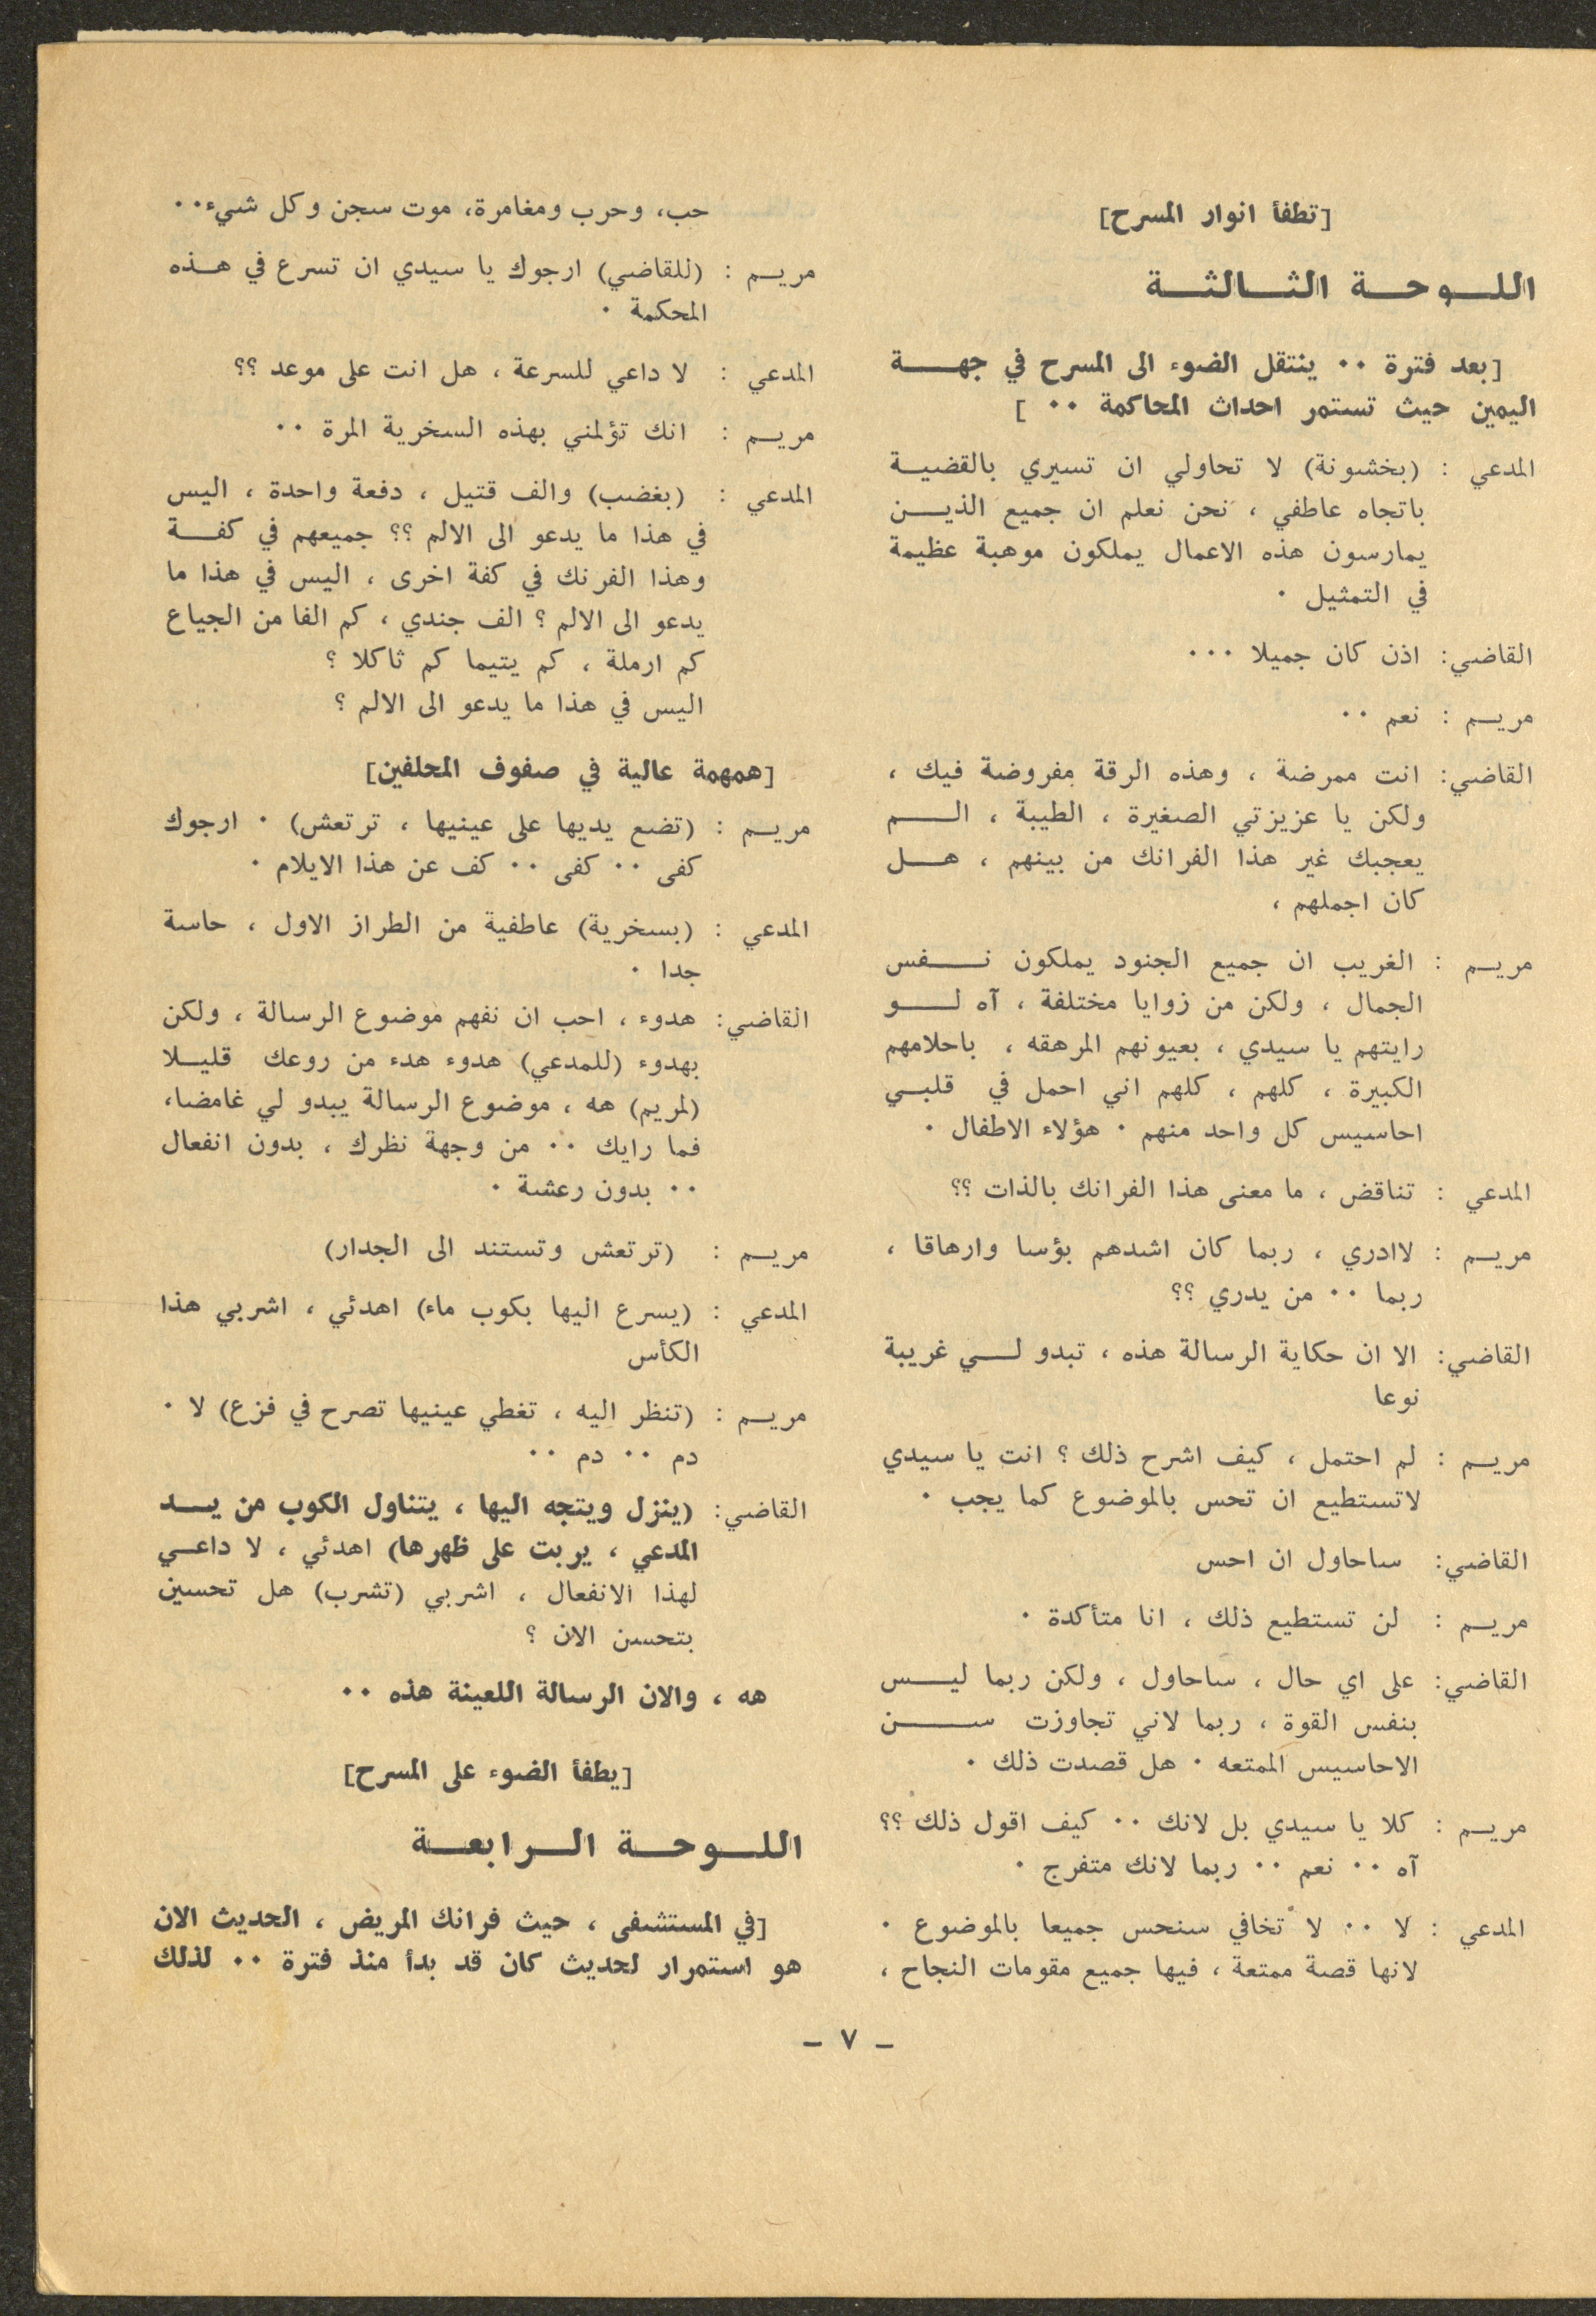 [تطفأ انوار المسرح]
اللوحة الثالثة
[بعد فترة ٠٠ ينتقل الضوء الى المسرح في جهة
اليمين حيث تستمر احداث المحاكمة ٠٠ ]
المدعي : (بخشونة) لا تحاولي ان تسيري بالقضية
باتجاه عاطفي ، نحن نعلم ان جميع الذين
يمارسون هذه الاعمال يملكون موهبة عظيمة
في التمثيل ٠
القاضي: اذن كان جميلا ٠٠٠
مريم : نعم ٠٠
القاضي: انت ممرضة ، وهذه الرقة مفروضة فيك ،
ولكن يا عزيزتي الصغيرة ، الطيبة ، الم
يعجبك غير هذا الفرانك من بينهم ، هل
كان اجملهم ،
مريم : الغريب ان جميع الجنود يملكون نفس
الجمال ، ولكن من زوايا مختلفة ، آه لو
رايتهم يا سيدي ، بعيونهم المرهقه ، باحلامهم
الكبيرة ، كلهم ، كلهم اني احمل في قلبي
احاسيس كل واحد منهم ٠ هؤلاء الاطفال ٠
المدعي : تناقض ، ما معنى هذا الفرانك بالذات ؟؟
مريم : لاادري ، ربما كان اشدهم بؤسا وارهاقا ،
ربما ٠٠ من يدري ؟؟
القاضي: الا ان حكاية الرسالة هذه ، تبدو لي غريبة
نوعا
مريم : لم احتمل ، كيف اشرح ذلك ؟ انت يا سيدي
لاتستطيع ان تحس بالموضوع كما يجب ٠
القاضي: ساحاول ان احس
مريم : لن تستطيع ذلك ، انا متأكدة ٠
القاضي: على اي حال ، ساحاول ، ولكن ربما ليس
بنفس القوة ، ربما لاني تجاوزت سن
الاحاسيس الممتعه ٠ هل قصدت ذلك ٠
مريم : كلا يا سيدي بل لانك ٠٠ كيف اقول ذلك ؟؟
آه ٠٠ نعم ٠٠ ربما لانك متفرج ٠
المدعي : لا ٠٠ لا تخافي سنحس جميعا بالموضوع ٠
لانها قصة ممتعة ، فيها جميع مقومات النجاح ،
حب، وحرب ومغامرة، موت سجن وكل شيء٠٠
مريم : (للقاضي) ارجوك يا سيدي ان تسرع في هذه
المحكمة ٠
المدعي : لا داعي للسرعة ، هل انت على موعد ؟؟
مريم : انك تؤلمني بهذه السخرية المرة ٠٠
المدعي : (بغضب) والف قتيل ، دفعة واحدة ، اليس
في هذا ما يدعو الى الالم ؟؟ جميعهم في كفة
وهذا الفرنك في كفة اخرى ، اليس في هذا ما
يدعو الى الالم ؟ الف جندي ، كم الفا من الجياع
كم ارملة ، كم يتيما كم ثاكلا ؟
اليس في هذا ما يدعو الى الالم ؟
[همهمة عالية في صفوف المحلفين]
مريم : (تضع يديها على عينيها ، ترتعش) ٠ ارجوك
كفى ٠٠ كفى ٠٠ كف عن هذا الايلام ٠
المدعي : (بسخرية) عاطفية من الطراز الاول ، حاسة
جدا ٠
القاضي: هدوء ، احب ان نفهم موضوع الرسالة ، ولكن
بهدوء (للمدعي) هدوء هدء من روعك قليلا
(لمريم) هه ، موضوع الرسالة يبدو لي غامضا،
فما رايك ٠٠ من وجهة نظرك ، بدون انفعال
٠٠ بدون رعشة ٠
مريم : (ترتعش وتستند الى الجدار)
المدعي : (يسرع اليها بكوب ماء) اهدئي ، اشربي هذا
الكأس
مريم : (تنظر اليه ، تغطي عينيها تصرح في فزع) لا ٠
دم ٠٠ دم ٠٠
القاضي: (ينزل ويتجه اليها ، يتناول الكوب من يد
المدعي ، يربت على ظهرها) اهدئي ، لا داعي
لهذا الانفعال ، اشربي (تشرب) هل تحسين
بتحسن الان ؟
هه ، والان الرسالة اللعينة هذه ٠٠
[يطفأ الضوء على المسرح]
اللوحة الرابعة
[في المستشفى ، حيث فرانك المريض ، الحديث الان
هو استمرار لحديث كان قد بدأ منذ فترة ٠٠ لذلك
– ٧ –